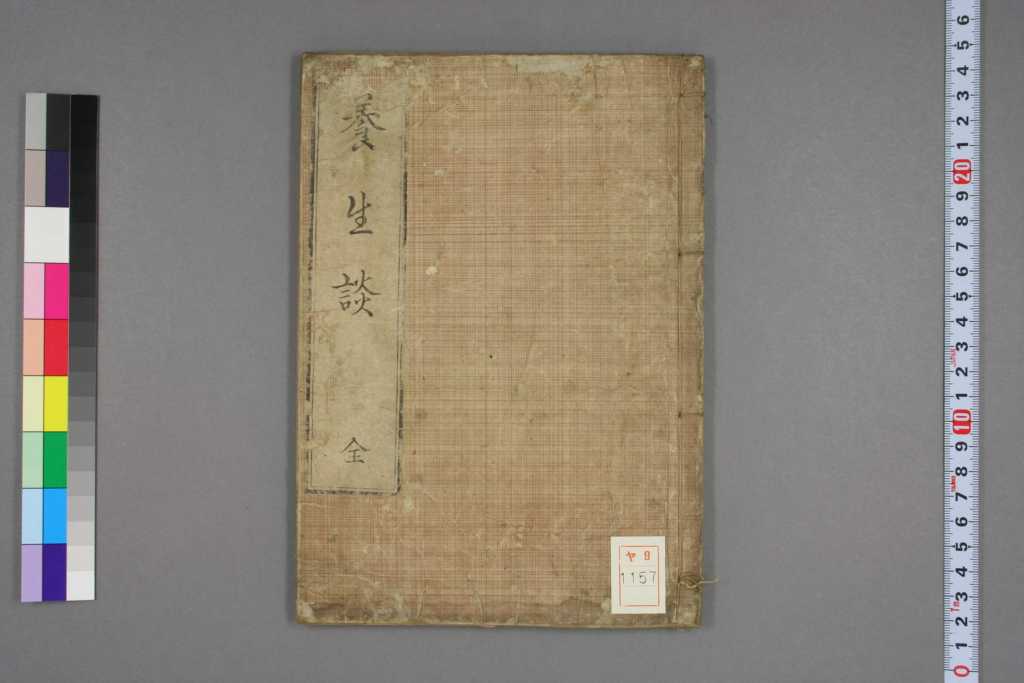 養生談
全
ヤ9
1157
6
5
4
3
2
1
20
9
8
7
6
5
4
3
2
1
10
9
8
7
6
5
4
3
2
1
0
JAPAN
1m